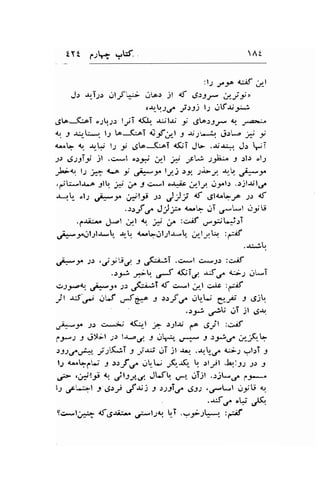 ۱۸۴ کتاب چهارم ۴۲۴
این گفته هومر را:
«نوترین سرودی که از دهان خنیاگران درآید دل
شنوندگان را زودتر می‌رباید»
منحصر به سرودهای نو ندانند بلکه آنرا درباره آهنگ‌های
نیز صادق بشمارند و این‌گونه آهنگ‌ها را بستایند و به
آنها دل ببندند. حال آنکه آهنگ‌های نو را نباید به جامعه
راه داد و منظور شاعر نیز این نبوده است. از نوآوری در
موسیقی باید برحذر بود زیرا موسیقی نو همه چیز را بخطر
می‌اندازد. دامون براین عقیده است و من نیز بااو همداستانم،
که در هرجامعه‌ای که تزلزلی در قوانین موسیقی راه یابد
قانون اساسی آن جامعه متزلزل می‌گردد.
آدئیمانتوس گفت: من نیز به این اصل معتقدم.
گفتم: بنابراین پاسداران‌جامعه‌باید پاسداران‌موسیقی
باشند.
گفت: درست است. آشفتگی و بی‌قانونی، در موسیقی
آسان رخنه می‌کند بی‌آنکه کسی باخبر شود.
گفتم: علت این است که آشفتگی در موسیقی به‌صورت
بازی و تفریح نمایان می‌گردد و هیچکس گمان نمی‌کند اثر
بدی از آن ناشی شود.
گفت: اثری هم ندارد جز اینکه نخست در موسیقی
جایگزین می‌شود و سپس پنهان و بی‌صدا در اخلاق و رسوم
و آداب رخنه می‌یابد. بعد از آن تندتر و آشکارتر پیش‌می‌رود
و در روابط افراد با یکدیگر نمایان می‌گردد و پیمان‌ها را
مسموم می‌سازد. ازآن پس باکمال بی‌پروائی به قوانین، حتی
به قانون اساسی، روی می‌آورد و زندگی فردی و اجتماعی را
بکلی تباه می‌کند.
گفتم: بسیارخوب. آیا به‌راستی معتقدی‌که چنین‌است؟